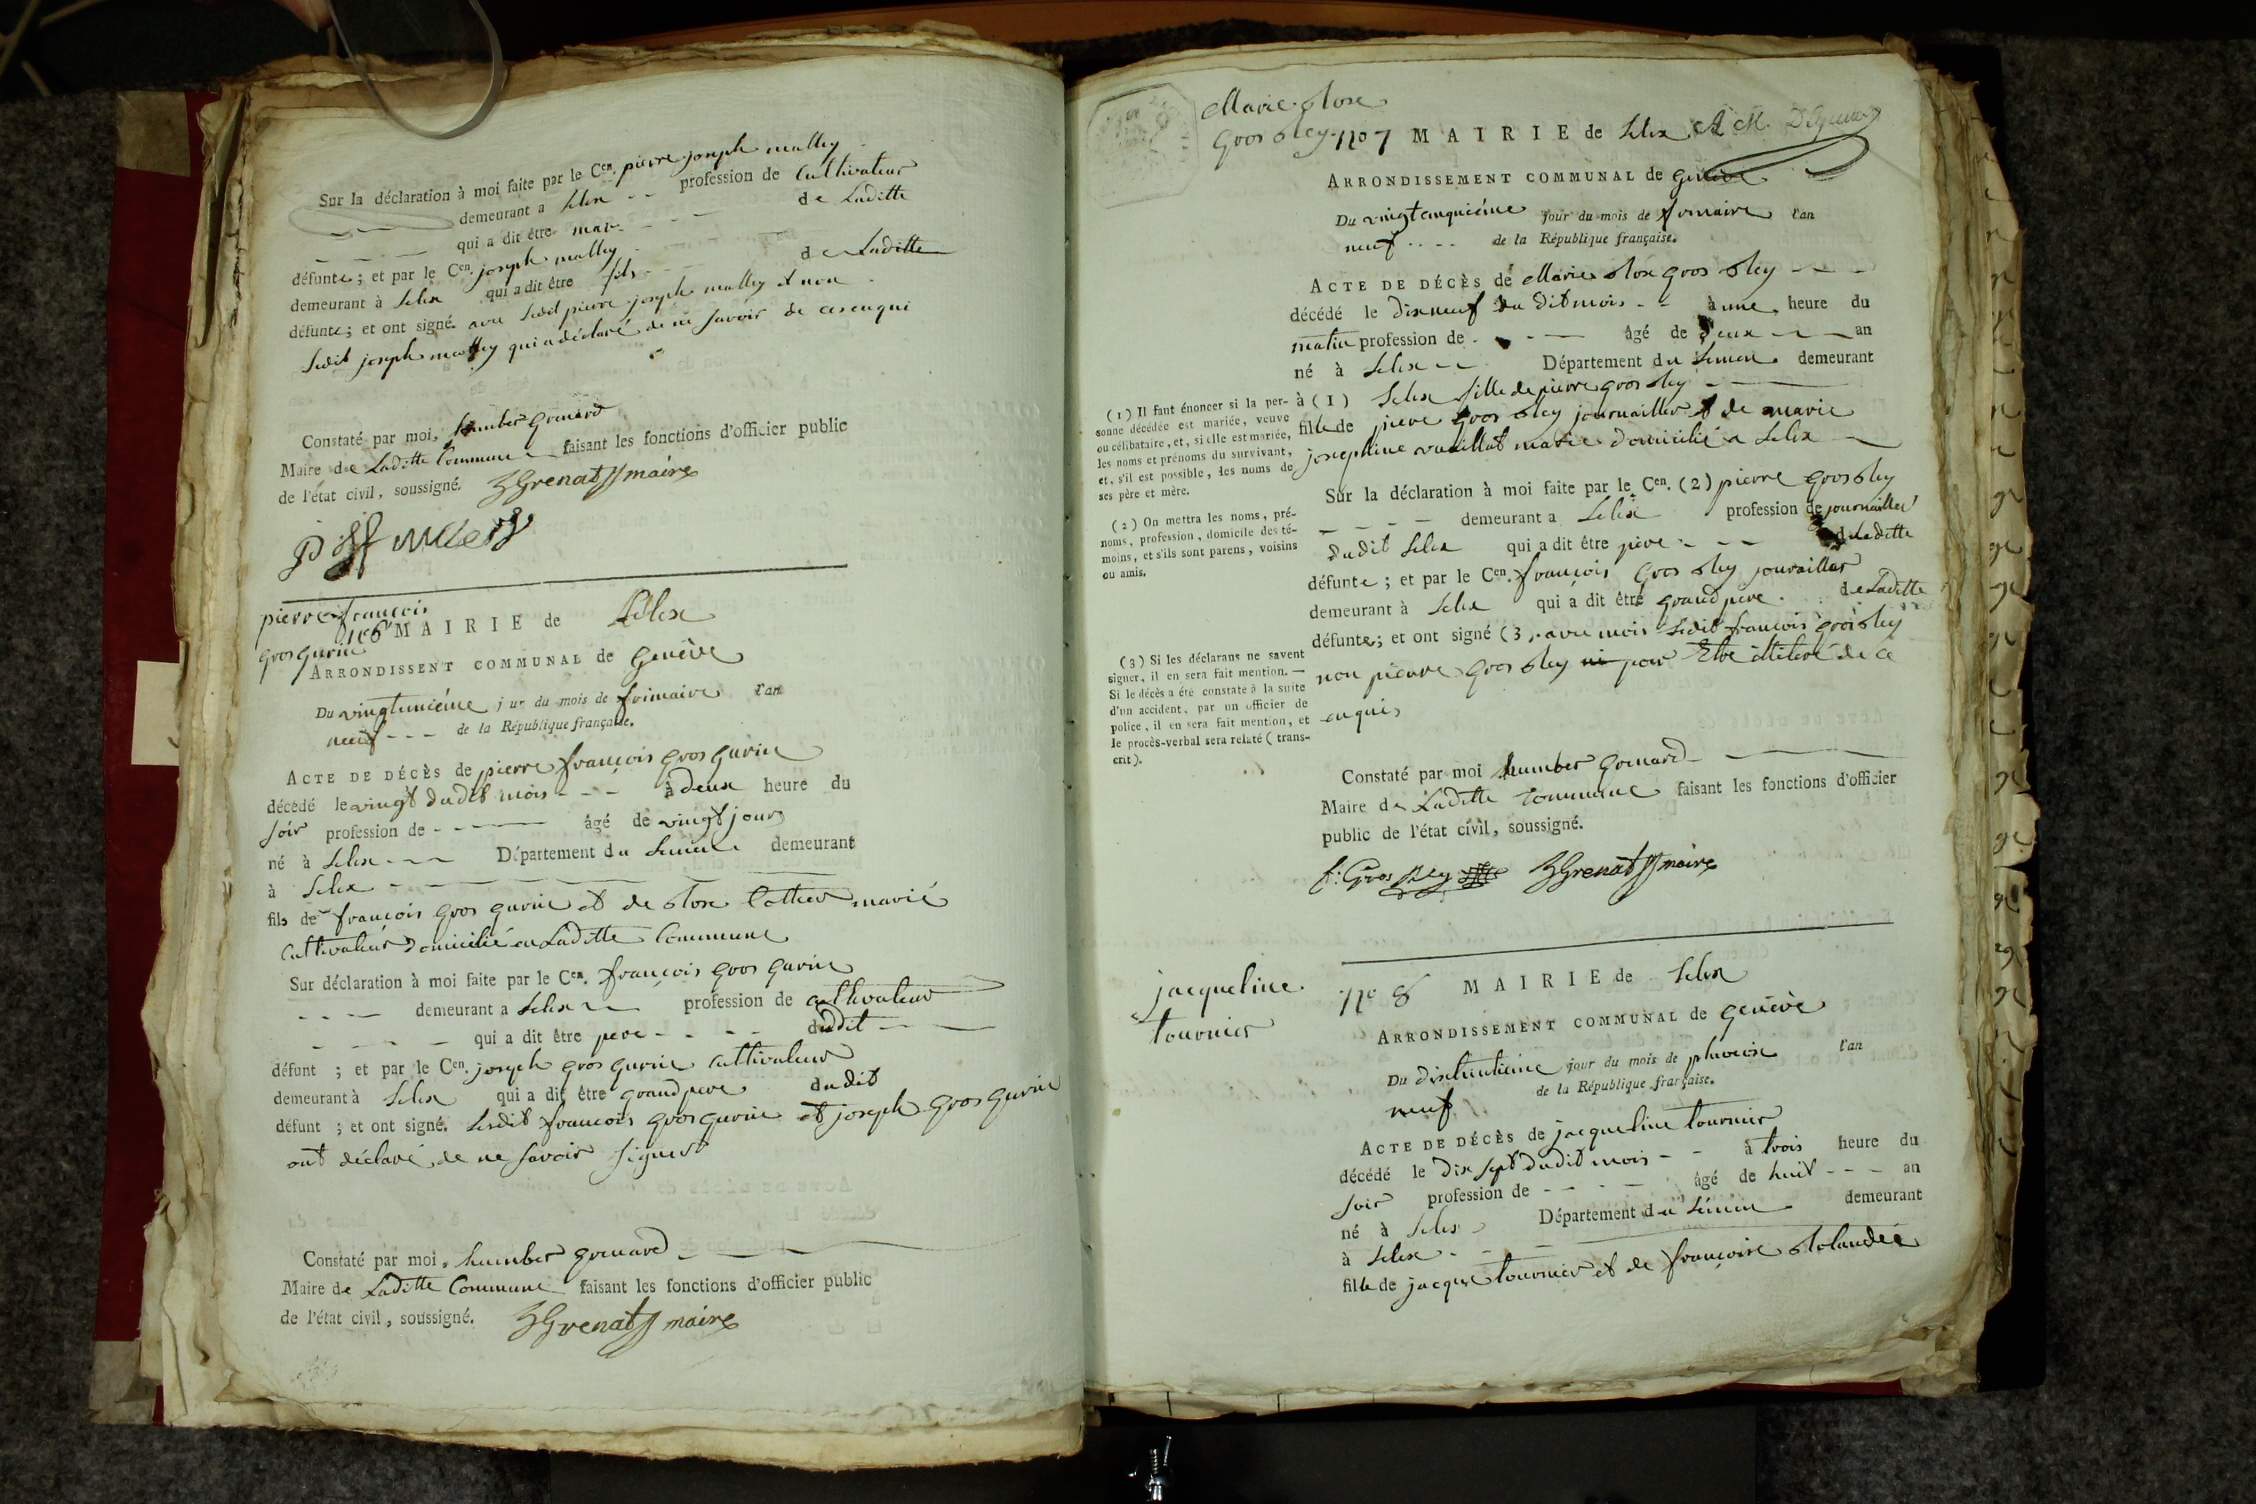 Sur la déclaration à moi faite par le Cen. pierre joseph mathey
demeurant a Lelex -- profession de Cultivateur
qui a dit être mari - - de Laditte
défunte; et par le Cen. joseph mathey
demeurant à Lelex qui a dit être fils - - de Laditte
défunte; et ont signé. avec ledit pierre joseph mathey et non
ledit joseph mathey qui a déclaré de ne savoir de ce enquis
Constaté par moi, humber grenard
Maire de Laditte Commune faisant les fonctions d'officier public
de l'état civil, soussigné. Grenard maire
pierre françois
gros gurin
no 6 MAIRIE de Lelex
ARRONDISSENT COMMUNAL de Genève
Du vingtunième jur du mois de frimaire l'an
neuf - - - de la République française.
ACTE DE DÉCÈS de pierre françois gros gurin
décédé le vingt dudit mois - - - à deux heure du
soir profession de - - - âgé de vingt jour
né à Lelex - - - Département du Leman demeurant
à Lelex - - -
fils de françois gros gurin et de Rose marié
Cultivateur domicilié en Laditte Commune
Sur déclaration à moi faite par le Cen. françois gros gurin
- - - demeurant a Lelex - profession de cultivateur
- - - qui a dit être pere - - - dudit - -
défunt ; et par le Cen. joseph gros gurin cultivateur
demeurant à Lelex qui a dit être grand pere dudit
défunt ; et ont signé. Lesdit françois gros gurin et joseph gros gurin
ont déclaré de ne savoir signer
Constaté par moi, humber grenard
Maire de Laditte Commune faisant les fonctions d'officier public
de l'état civil, soussigné. Grenard maire
Marie Rose
Gros Rey no 7 MAIRIE de Lelex
ARRONDISSEMENT COMMUNAL de Genève
Du vingtcinquième jour du mois de frimaire l'an
neuf - - - de la République française.
ACTE DE DÉCÈS de Marie Rose gros Rey
décédé le dixneuf du dit mois - - à une heure du
matin profession de - - - âgé de deux - - an
né à Lelex - - Département du Leman demeurant
à (1) Lelex fille de pierre gros Rey
fille de pierre gros Rey journaillier et de marie
josephline vuaillat marié domicilié a Lelex
Sur la déclaration à moi faite par le Cen. (2) pierre gros Rey
- - - - demeurant a Lelex profession de journaillier
dudit Lelex qui a dit être père - - - de Laditte
défunte; et par le Cen. françois gros Rey journaillier
demeurant à Lelex qui a dit être grand pere. de Laditte
défunte; et ont signé (3) avec mois Ledit françois gros Rey
non pierre gros Rey pour Etre illiteré de ce
enquis
(1) Il faut énoncer si la per-
sonne décédée est mariée, veuve
ou célibataire, et, si elle est mariée,
les noms et prénoms du survivant,
et, s'il est possible, les noms de
ses père et mère.
(2) On mettra les noms, pré-
noms, profession, domicile des té-
moins, et s'ils sont parens, voisins
ou amis.
(3) Si les déclarans ne savent
signer, il en sera fait mention. —
Si le décès a été constaté à la suite
d'un accident, par un officier de
police, il en sera fait mention, et
le procès-verbal sera relaté (trans-
crit).
Constaté par moi humber grenard
Maire de Laditte Commune faisant les fonctions d'officier
public de l'état civil, soussigné.
f: Gros Rey Grenard maire
jacqueline
tournier
no 8 MAIRIE de Lelex
ARRONDISSEMENT COMMUNAL de Genève
Du dixhuitième jour du mois de pluviose l'an
neuf de la République française.
ACTE DE DÉCÈS de jacqueline tournier
décédé le dix sept dudit mois - - à trois heure du
soir profession de - - - - âgé de huit - - - an
né à Lelex Département du Leman demeurant
à Lelex - - -
fille de jacque tournier et de françoise